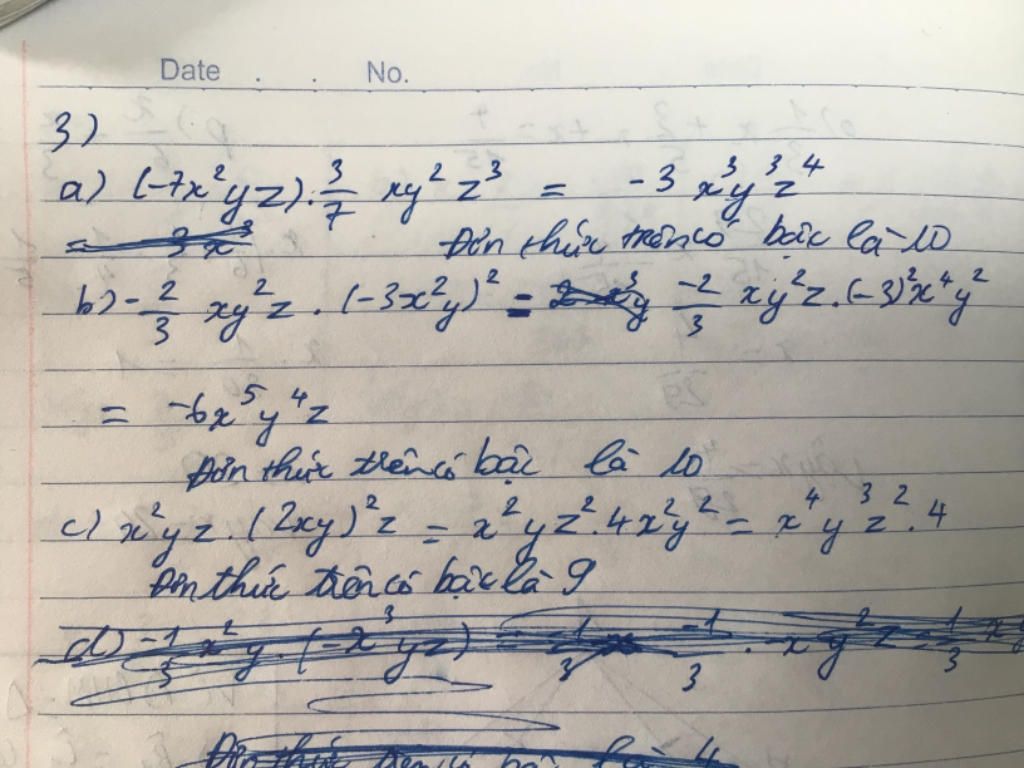 Date . . No.
3)
a) (-7x²yz).3/7 xy²z³ = -3 x³y³z⁴
Đơn thức trên có bậc là 10
b) -2/3 xy²z . (-3x²y)² = -2/3 xy²z.(-3)²x⁴y²
= -6x⁵y⁴z
Đơn thức trên có bậc là 10
c) x²yz.(2xy)²z = x²yz².4x²y² = x⁴y³z².4
Đơn thức trên có bậc là 9
d) -1/3 x²y.(-x³yz)
Đơn thức trên có bậc là 4